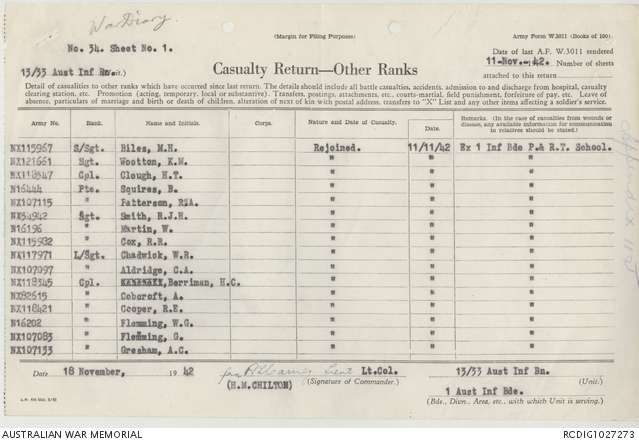 War Diary.
(Margin for Filing Purposes)
Army Form W.3011 (Books of 100).
No. 34. Sheet No. 1.
Date of last A.F. W.3011 rendered
11-Nov.-42. Number of sheets
13/33 Aust Inf Bn.
Casualty Return—Other Ranks
attached to this return
Detail of casualties to other ranks which have occurred since last return. The details should include all battle casualties, accidents, admission to and discharge from hospital, casualty
clearing station, etc. Promotion (acting, temporary, local or substantive). Transfers, postings, attachments, etc., courts-martial, field punishment, forfeiture of pay, etc. Leave of
absence, particulars of marriage and birth or death of children, alteration of next of kin with postal address, transfers to "X" List and any other items affecting a soldier's service.
Army No. Rank. Name and Initials. Corps. Nature and Date of Casualty. Date. Remarks. (In the case of casualties from wounds or disease, any available information for communication to relatives should be stated.)
NX115967 S/Sgt. Biles, M.H. Rejoined. 11/11/42 Ex 1 Inf Bde P.& R.T. School.
NX121661 Sgt. Wootton, K.M. " " "
NX118547 Cpl. Clough, H.T. " " "
N16444 Pte. Squires, B. " " "
NX107115 " Patterson, R.A. " " "
NX54942 Sgt. Smith, R.J.H. " " "
N16196 " Martin, W. " " "
NX115932 " Cox, R.R. " " "
NX117971 L/Sgt. Chadwick, W.R. " " "
NX107097 " Aldridge, C.A. " " "
NX118345 Cpl. Berriman, H.C. " " "
NX82615 " Cobcroft, A. " " "
NX118421 " Cooper, R.E. " " "
N16202 " Flemming, W.G. " " "
NX107083 " Flemming, G. " " "
NX107133 " Gresham, A.C. " " "
Date 18 November, 1942 for Lieut Lt.Col. 13/33 Aust Inf Bn.
(H.M.CHILTON) (Signature of Commander.) (Unit.)
1 Aust Inf Bde.
(Bde., Divn., Area, etc., with which Unit is serving.)
AUSTRALIAN WAR MEMORIAL
RCDIG1027273